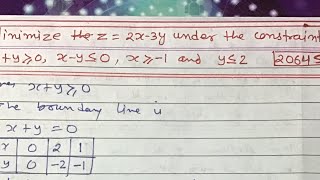 inimize the z = 2x-3y under the constraint
+y≥0, x-y≤0, x≥-1 and y≤2 2064S
x+y≥0
The boundary line is
x+y=0
x 0 2 1
y 0 -2 -1